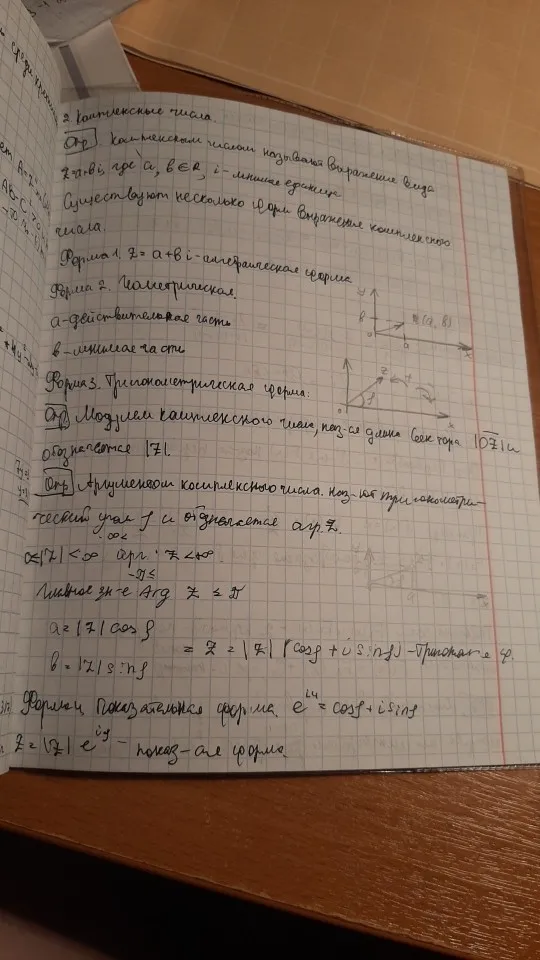 2 Комплексные числа.
Опр. Комплексным числом называют выражение вида
z=a+bi, где a, b∈R, i-мнимая единица
Существуют несколько форм выражения комплексного
числа.
Форма 1. Z = a+bi - алгебраическая форма
Форма 2. Геометрическая.
a-действительная часть
b-мнимая часть
y
b
z(a, b)
0
a
x
Форма 3. Тригонометрическая форма:
z
φ
0
x
Опр Модулем комплексного числа, наз-ся длина вектора |OZ| и
обозначается |Z|.
Опр Аргументом комплексного числа. наз-ют тригонометри-
ческий угол φ и обозначается arg Z.
-∞<
|Z| < ∞ арг: Z < +∞.
-π≤
Главное зн-е Arg Z ≤ π
a = |Z| cosφ
b = |Z| sinφ
= Z = |Z| (cosφ + i sinφ) -
Форма 4. Показательная форма. e^iφ = cosφ + i sinφ
Z = |Z| e^iφ - показ-ая форма.